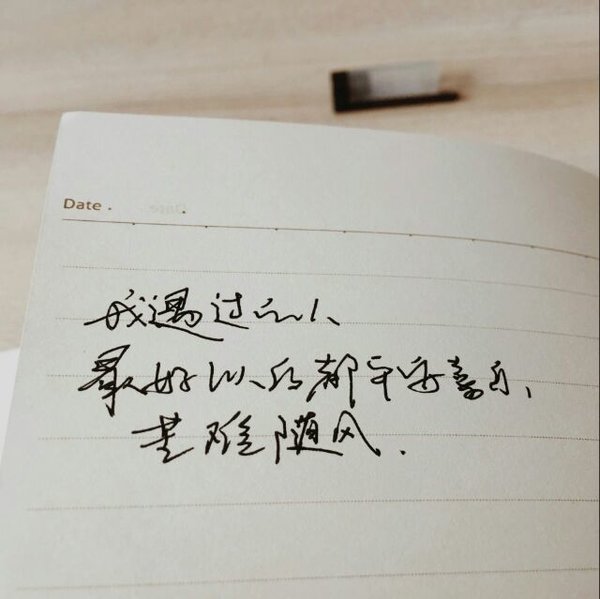 Date
我遇过的人、
最好以后都平安喜乐、
苦难随风.